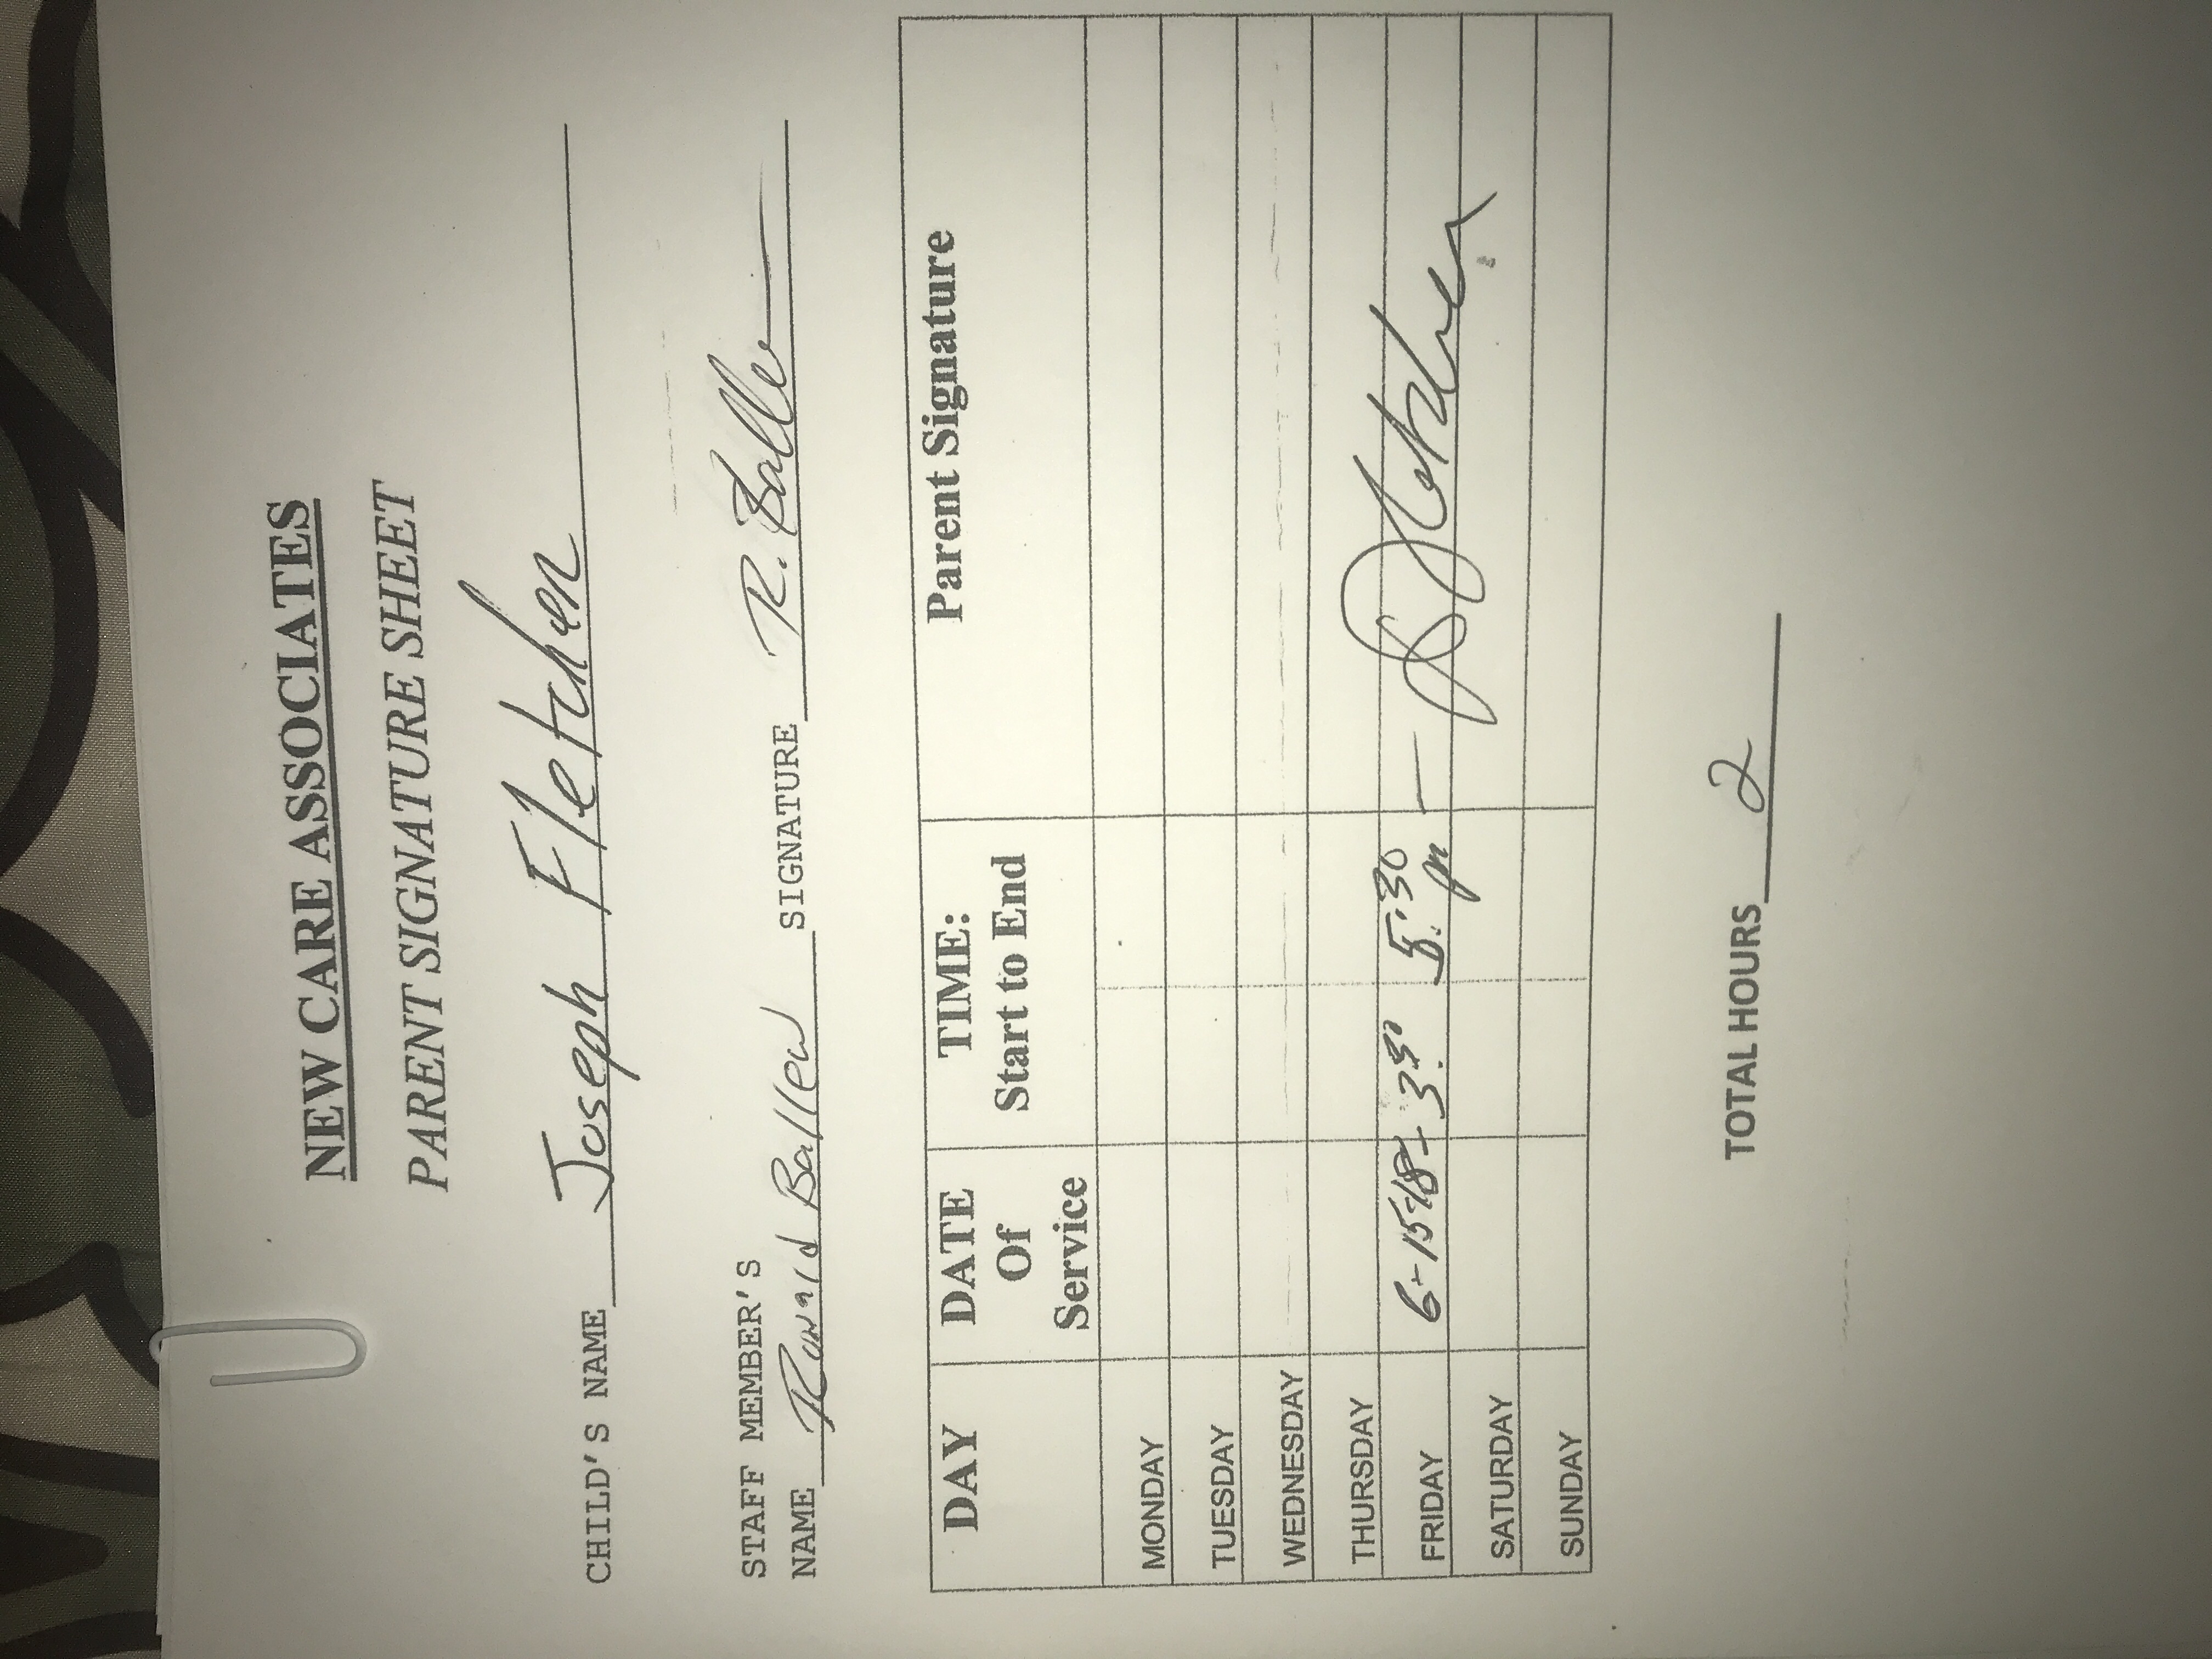 NEW CARE ASSOCIATES
PARENT SIGNATURE SHEET
CHILD'S NAME Joseph Fletcher
STAFF MEMBER'S
NAME Ronald Ballew SIGNATURE R. Ballew
DAY DATE Of Service TIME: Start to End Parent Signature
MONDAY
TUESDAY
WEDNESDAY
THURSDAY
FRIDAY 6-15-18 - 3:30 5:30 pm - Fletcher
SATURDAY
SUNDAY
TOTAL HOURS 2